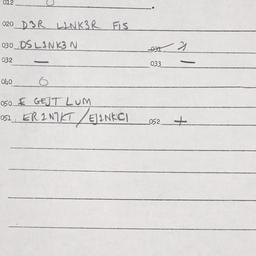 012
020 D3R LINK3R FIS
030 DSLINK3N 031
032 — 033 —
040 0
050 E GEJT LUM
051 ER IN7KT / EJINKCI 052 +